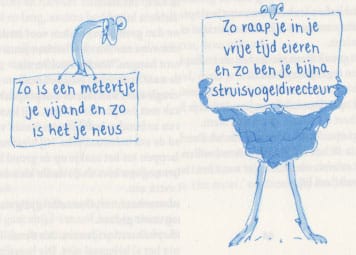 Zo is een metertje
je vijand en zo
is het je neus
Zo raap je in je
vrije tijd eieren
en zo ben je bijna
struisvogeldirecteur